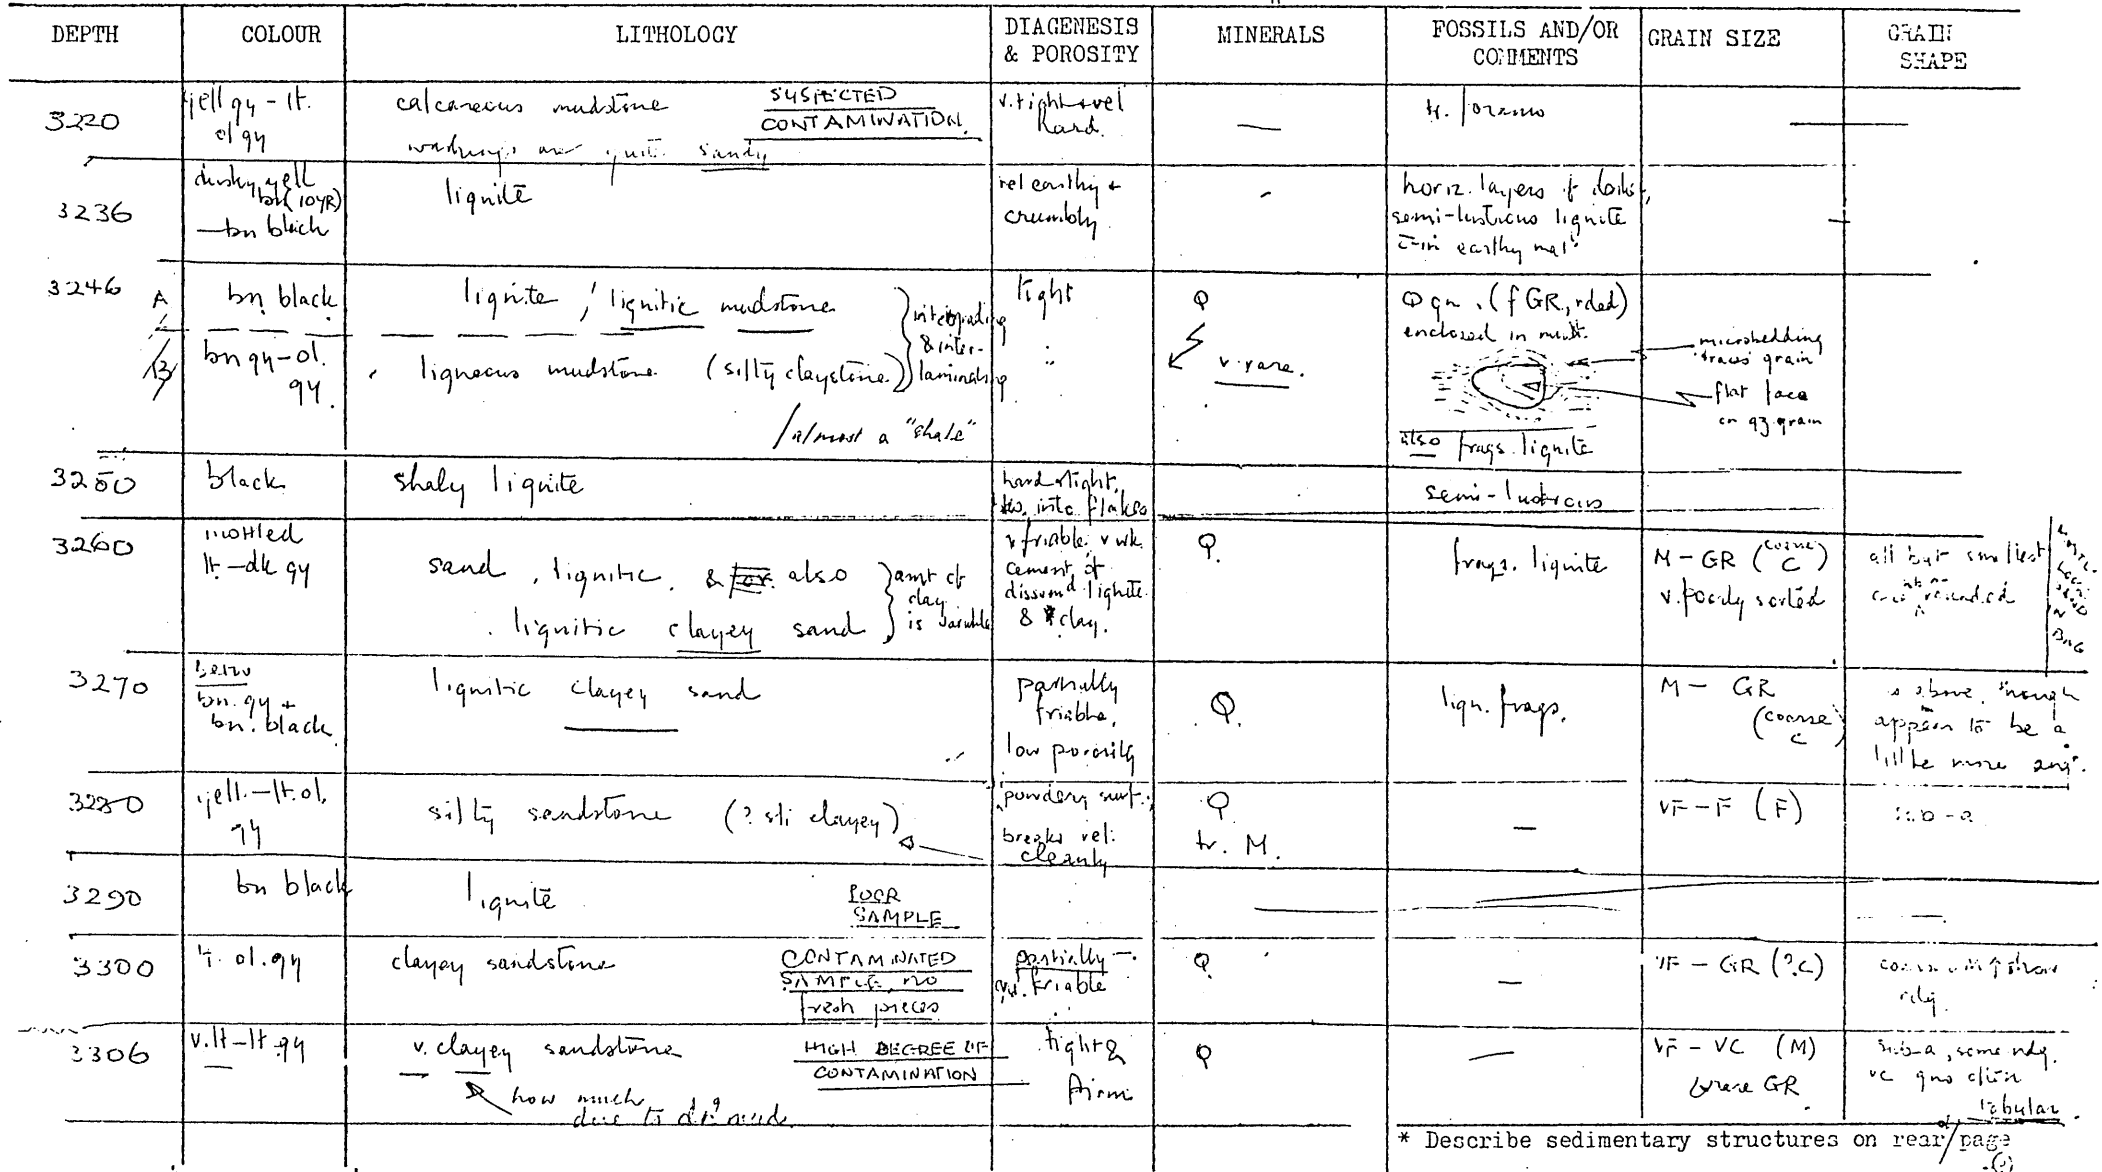 DEPTH COLOUR LITHOLOGY DIAGENESIS & POROSITY MINERALS FOSSILS AND/OR COMMENTS GRAIN SIZE GRAIN SHAPE
3220
yell gy - lt.
ol gy
calcareous mudstone
washings are quite sandy
SUSPECTED
CONTAMINATION.
v. tight & rel
hard.
—
tr. forams
—
3236
dusky yell
bn (10YR)
— bn black
lignite
rel earthy +
crumbly
-
horiz. layers of
semi-lustrous lignite
earthy
—
3246
A
bn. black
lignite / lignitic mudstone
tight
Q
Q gn. (f GR, rded)
enclosed in
B
bn gy - ol.
gy.
ligneous mudstone (silty claystone)
intergrading
& inter-
laminating
"
v. rare.
microbedding
grain
flat face
on qz. grain
/ almost a "shale"
also frags. lignite
3250
black
shaly lignite
hard & tight,
into flakes
semi-lustrous
3260
mottled
lt. - dk gy
sand, lignitic, & also
lignitic clayey sand
amt of
clay
is variable
v friable, v wk.
cement of
lignite
& clay.
Q.
frags. lignite
M - GR (coarse C)
v. poorly sorted
all but smallest
rounded
IN
BAG
3270
bn. gy +
bn. black
lignitic clayey sand
partially
friable,
low porosity
Q.
lign. frags.
M - GR
(coarse C)
as above, though
appear to be a
little more ang.
3280
yell. - lt. ol.
gy
silty sandstone (? sli clayey)
powdery surf.,
breaks rel.
cleanly
Q
tr. M.
—
VF - F (F)
sub - a
3290
bn black
lignite
POOR
SAMPLE
—
3300
lt. ol. gy
clayey sandstone
CONTAMINATED
SAMPLE, NO
fresh pieces
partially
friable
Q
—
VF - GR (?C)
rdg.
3306
v. lt - lt. gy
v. clayey sandstone
how much
due to mud.
HIGH DEGREE OF
CONTAMINATION
tight &
firm
Q
—
VF - VC (M)
GR
sub-a, some rdg.
vc gns often
tabular
* Describe sedimentary structures on rear/page